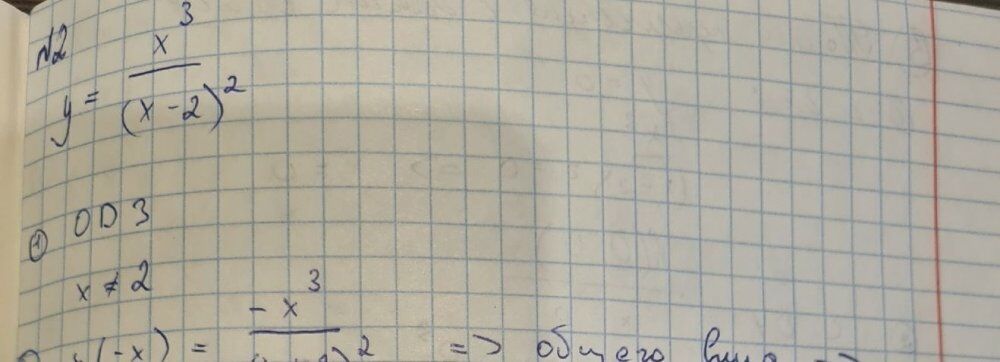 №2
y = x³ / (x - 2)²
① ОДЗ
x ≠ 2
y(-x) = -x³ / ()² => общего вида =>